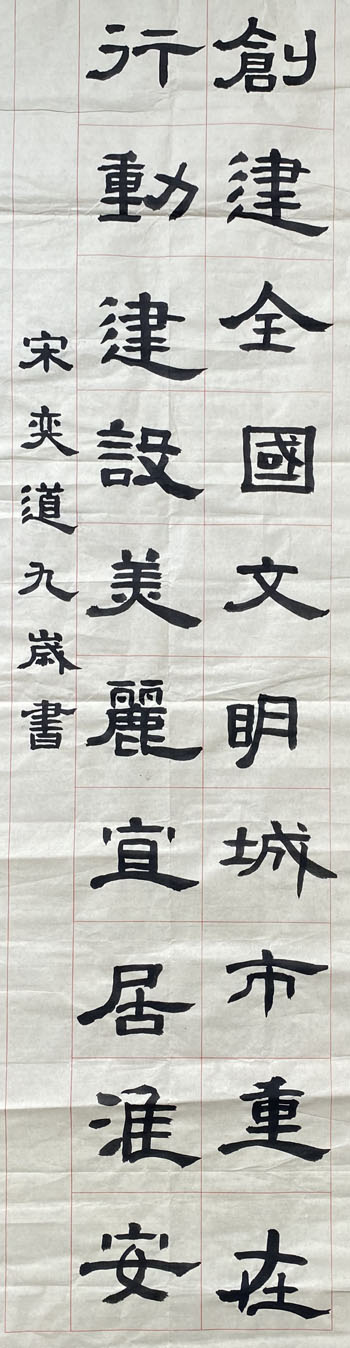 創建全國文明城市重在
行動建設美麗宜居淮安
宋奕道九歲書